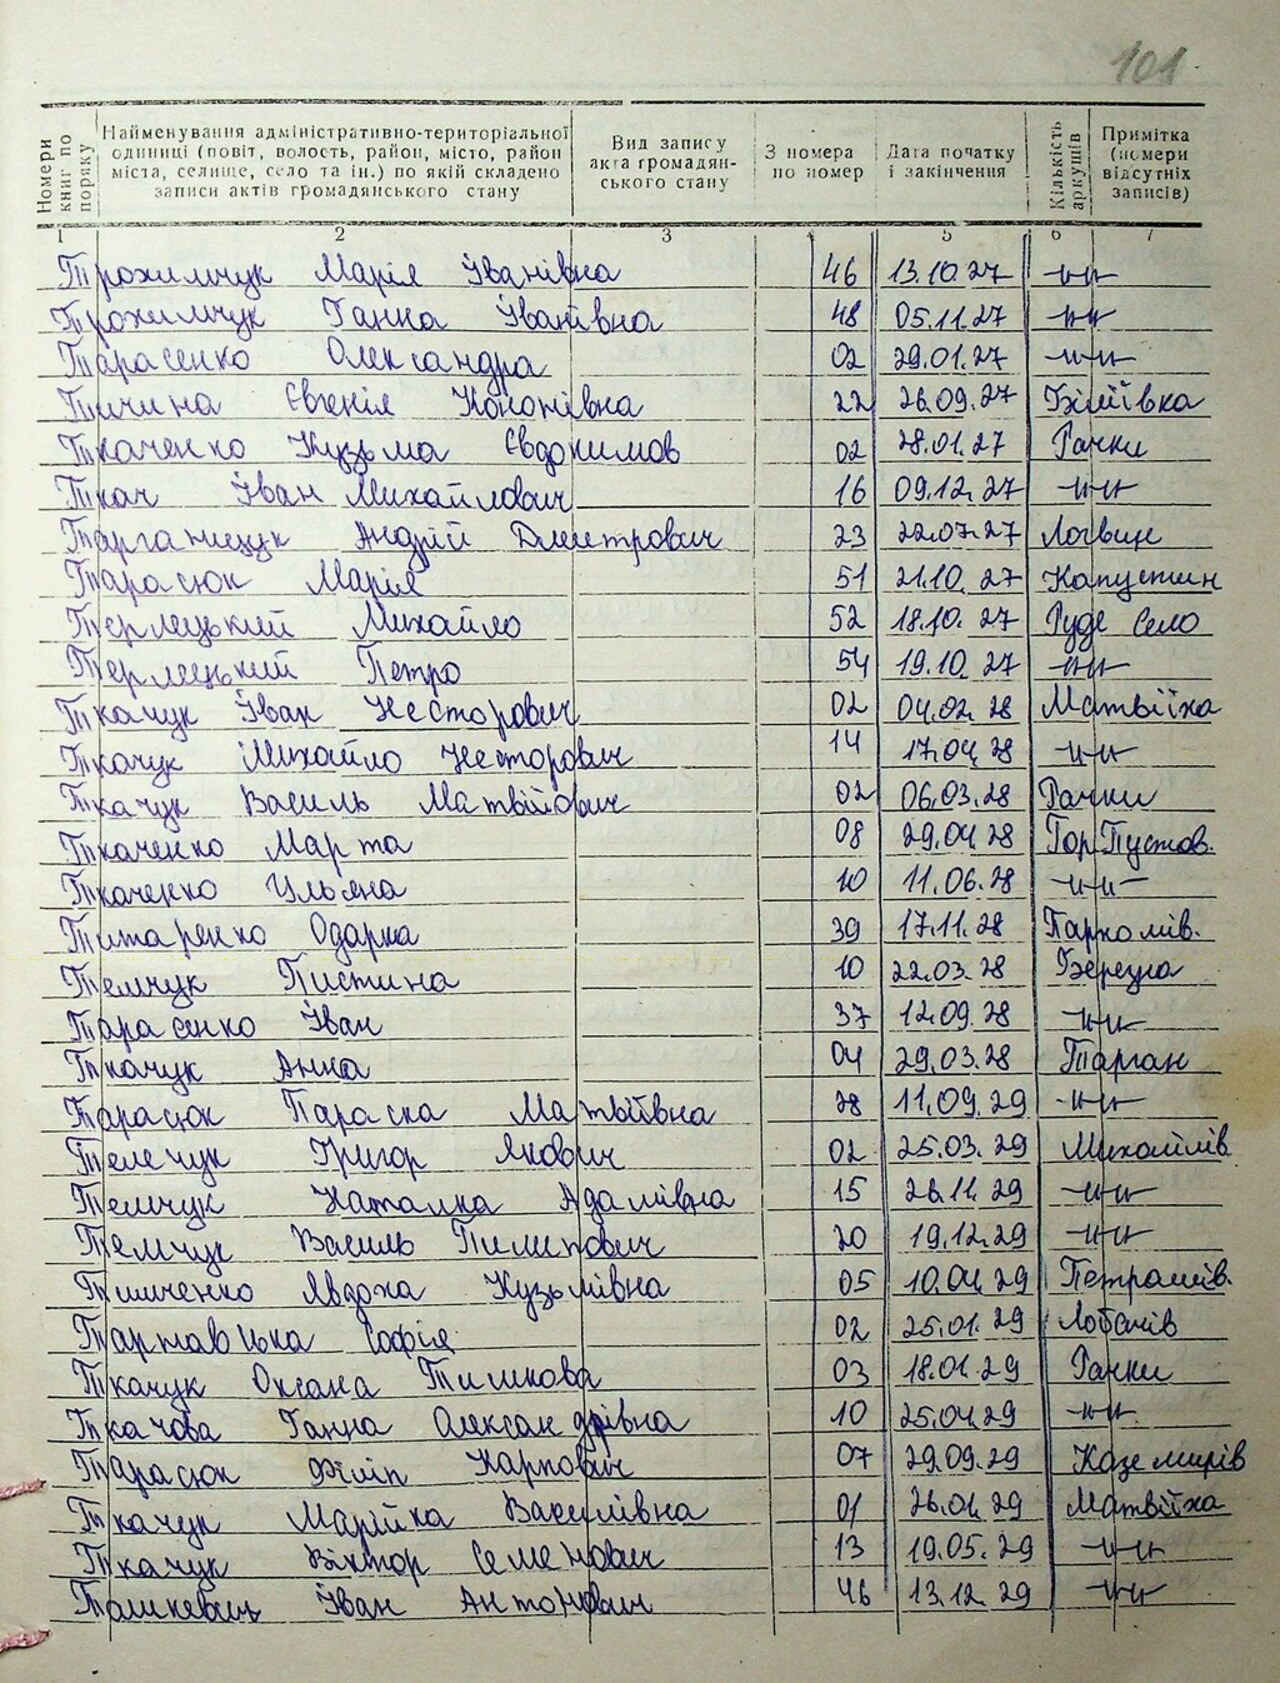 101
Номери книг по порядку
Найменування адміністративно-територіальної одиниці (повіт, волость, район, місто, район міста, селище, село та ін.) по якій складено записи актів громадянського стану
Вид запису акта громадян-ського стану
З номера по номер
Дата початку і закінчення
Кількість аркушів
Примітка (номери відсутніх записів)
1 2 3 4 5 6 7
Трохимчук Марія Іванівна 46 13.10.27 -"-
Трохимчук Ганна Іванівна 48 05.11.27 -"-
Тарасенко Олександра 02 29.01.27 -"-
Тичина Євгенія Кононівна 22 26.09.27 Біліївка
Ткаченко Кузьма Євдокимов 02 28.01.27 Рачки
Ткач Іван Михайлович 16 09.12.27 -"-
Андрій Дмитрович 23 22.07.27 Логвин
Тарасюк Марія 51 21.10.27 Капустин
Терлецький Михайло 52 18.10.27 Руде Село
Терлецький Петро 54 19.10.27 -"-
Ткачук Іван Несторович 02 04.02.28 Матвіїха
Ткачук Михайло Несторович 14 17.04.28 -"-
Ткачук Василь Матвійович 02 06.03.28 Рачки
Ткаченко Марта 08 29.04.28 Гор.Пустов.
Ткаченко Ульяна 10 11.06.28 -"-
Титаренко Одарка 39 17.11.28 Пархомів.
Темчук Пистина 10 22.03.28 Березна
Тарасенко Іван 37 12.09.28 -"-
Ткачук Анна 04 29.03.28 Тарган
Тарасюк Параска Матвіївна 28 11.09.29 -"-
Телечук Григор Якович 02 25.03.29 Михайлів
Темчук Наталка Адамівна 15 26.11.29 -"-
Темчук Василь Пилипович 20 19.12.29 -"-
Тимченко Явдоха Кузьмівна 05 10.04.29 Петрашів.
Софія 02 25.01.29 Лобачів
Ткачук Оксана Тимкова 03 18.01.29 Рачки
Ткачова Ганна Олександрівна 10 25.04.29 -"-
Тарасюк Філіп Карпович 07 29.09.29 Каземирів
Ткачук Марійка Василівна 01 26.01.29 Матвіїха
Ткачук Віктор Семенович 13 19.05.29 -"-
Іван Антонович 46 13.12.29 -"-